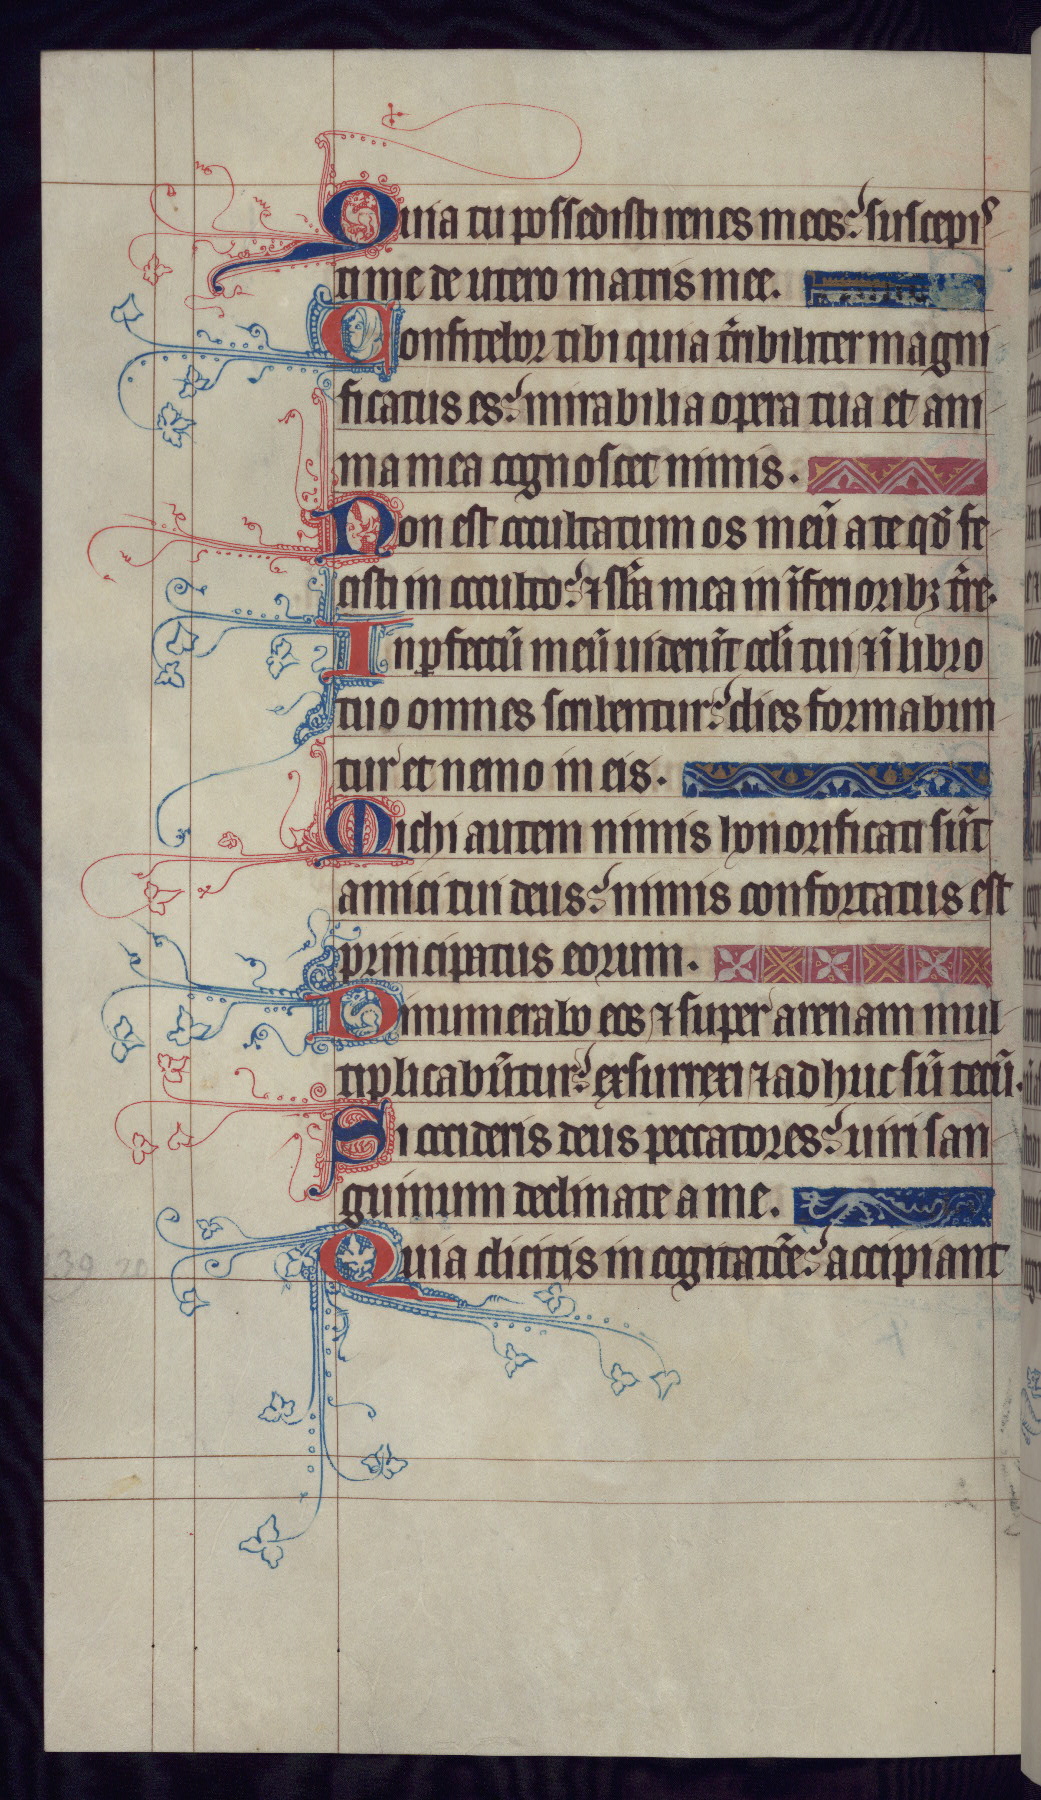 Quia tu possedisti renes meos: suscepis
ti me de utero matris mee.
Confitebor tibi quia t̃ribiliter magni
ficatus es: mirabilia opera tua et ani
ma mea cognoscet nimis.
Non est occultatum os meũ a te qd̃ fe
cisti in occulto: ⁊ sb̃a mea in ĩferioribꝫ tr̃e.
Inꝑfectũ meũ uider̃ut ocl̃i tui ⁊ ĩ libro
tuo omnes scribentur: dies formabun
tur et nemo in eis.
Michi autem nimis honorificati sũt
amici tui deus: nimis confortatus est
principatus eorum.
Dinumerabo eos ⁊ super arenam mul
tiplicabũtur: exsurrexi ⁊ adhuc sũ tecũ.
Si occideris deus peccatores: uiri san
guinum declinate a me.
Quia dicitis in cogitatõe: accipiant
39 20